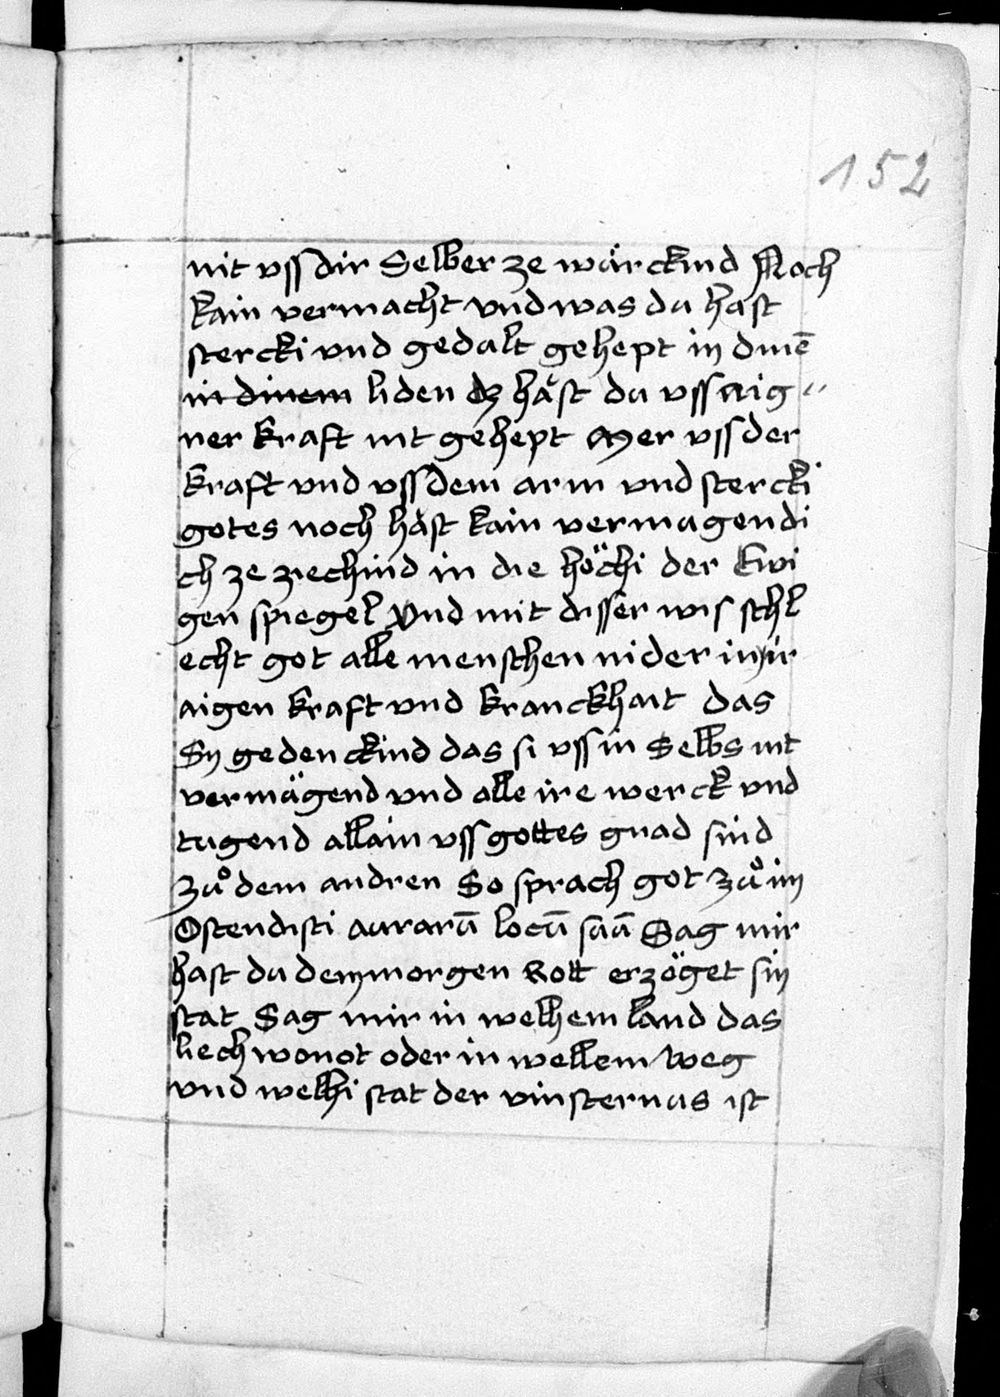 152
nit vss dir Selber ze würckind Noch
kain vermacht vnd was du hast
stercki vnd gedult gehept in dinē
in dinem liden dz häst du vss aig〃
ner kraft nit gehept Mer vss der
kraft vnd vss dem arm vnd stercki
gotes noch häst kain vermugendi
ch ze ziechind in die höchi der Ewi
gen spiegel Vnd mit disser wis schl
echt got alle menschen nider in ir
aigen kraft vnd kranckhait das
Sy gedenckind das si vss in Selbs nit
vermägend vnd alle ire werck vnd
tugend allain vss gottes gnad sind
zuͦ dem andren So sprach got zuͦ im
Ostendisti aurarū locū suū Sag mir
hast du dem morgen Rott erzöget sin
stat Sag mir in welhem land das
liech wonot oder in wellem weg
vnd welhi stat der vinsternus ist